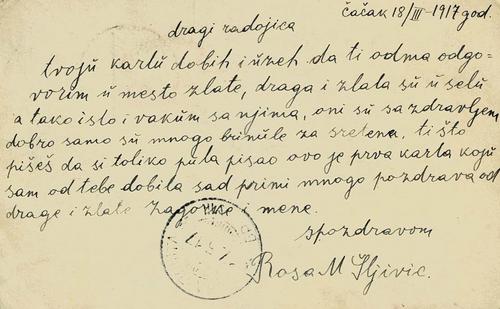 čačak 18/III-1917 god.
dragi radojica
tvoju kartu dobih i uzeh da ti odma odgo-
vorim u mesto zlate, draga i zlata su u selu
a tako isto i vakum sa njima, oni su sa zdravljem
dobro samo su mnogo brinule za sretena, ti što
pišeš da si toliko puta pisao ovo je prva karta koju
sam od tebe dobila sad primi mnogo pozdrava od
drage i zlate Zagorke i mene.
s pozdravom
Rosa M Šljivic.